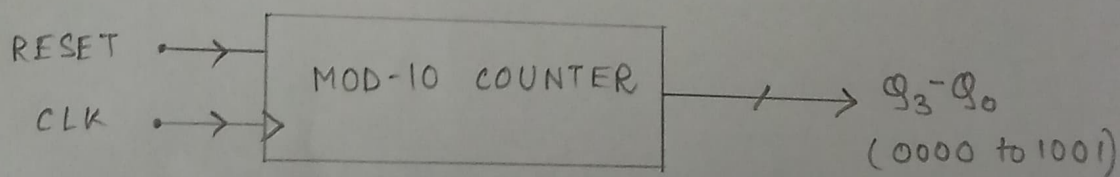 RESET
MOD-10 COUNTER
CLK
Q3-Q0
(0000 to 1001)